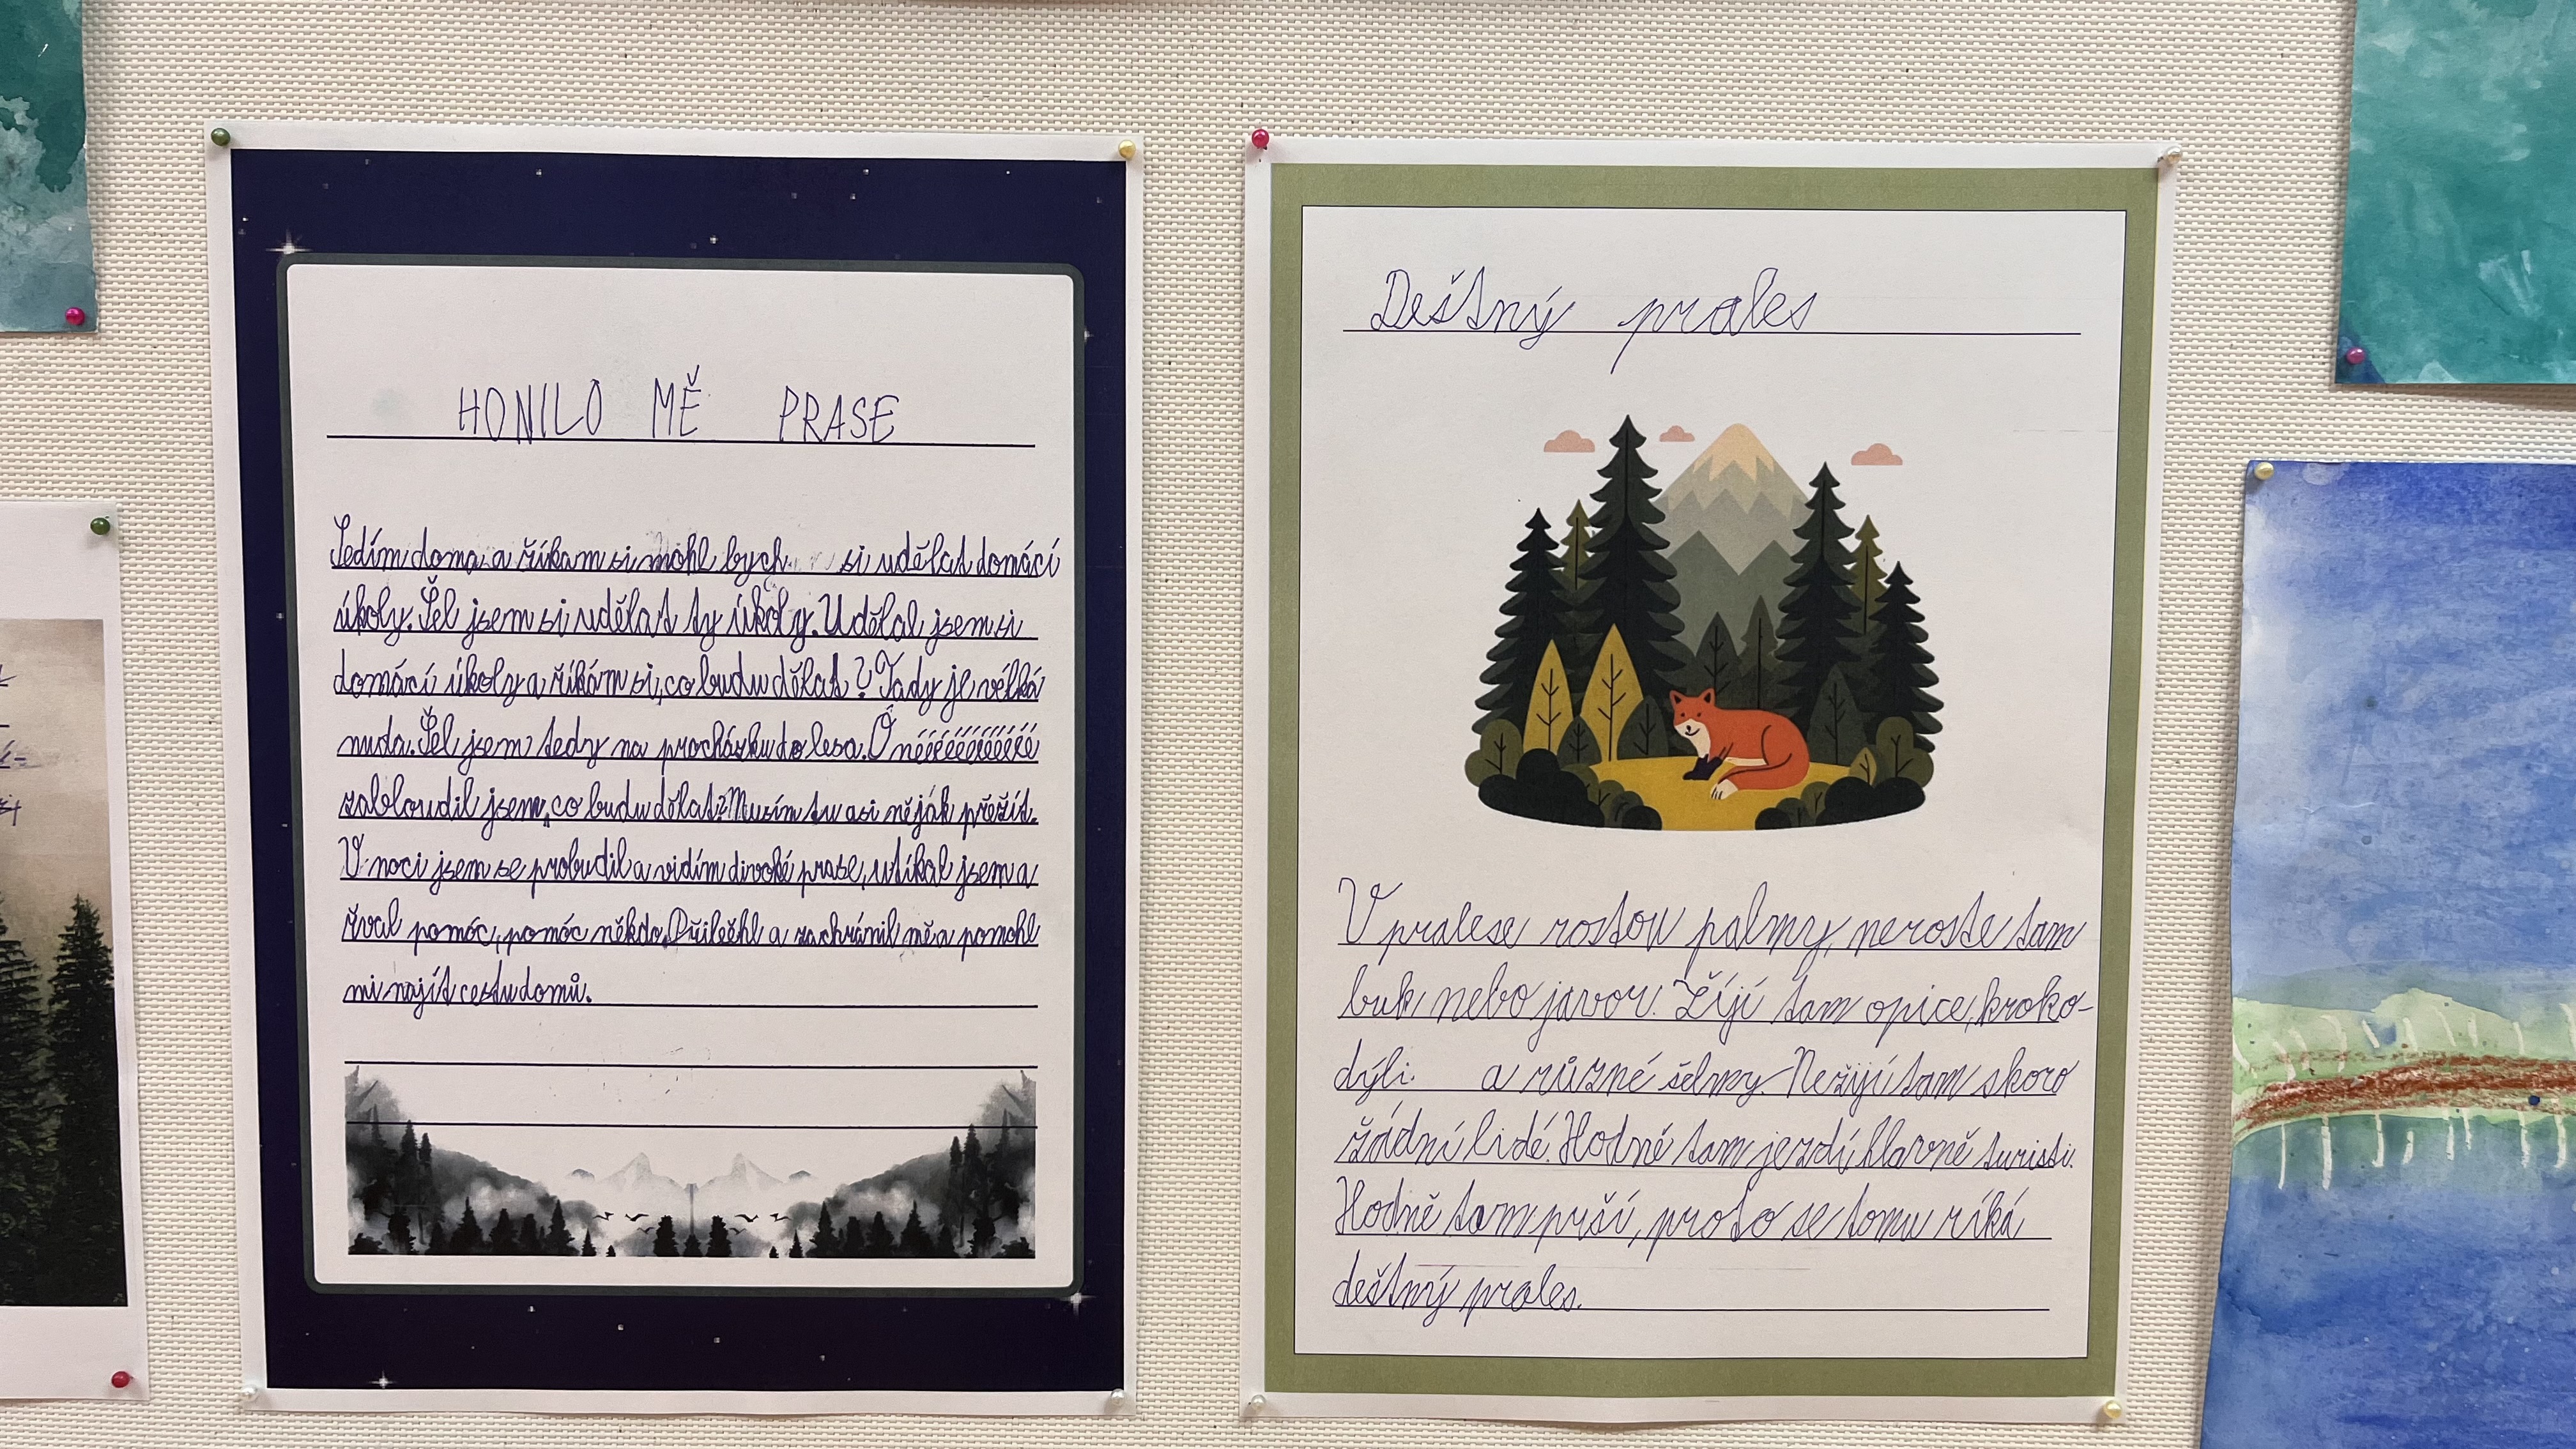 HONILO MĚ PRASE
Sedím doma a říkam si mohl bych si udělat domácí
úkoly. Šel jsem si udělat ty úkoly. Udělal jsem si
domácí úkoly a říkám si, co budu dělat? Tady je velká
nuda. Šel jsem tedy na procházku do lesa. Ó nééééééééééé
zabloudil jsem, co budu dělat? Musím tu asi něják přežít.
V noci jsem se probudil a vidím divoké prase, utíkal jsem a
řval pomóc, pomóc někdo. Přiběhl a zachránil mě a pomohl
mi najít cestu domů.
Deštný prales
V pralese rostou palmy, neroste tam
buk nebo javor. Žíjí tam opice, kroko-
dýli a různé šelmy. Nežijí tam skoro
žádní lidé. Hodně tam jezdí hlavně turisti.
Hodně tam prší, proto se tomu ríká
deštný prales.